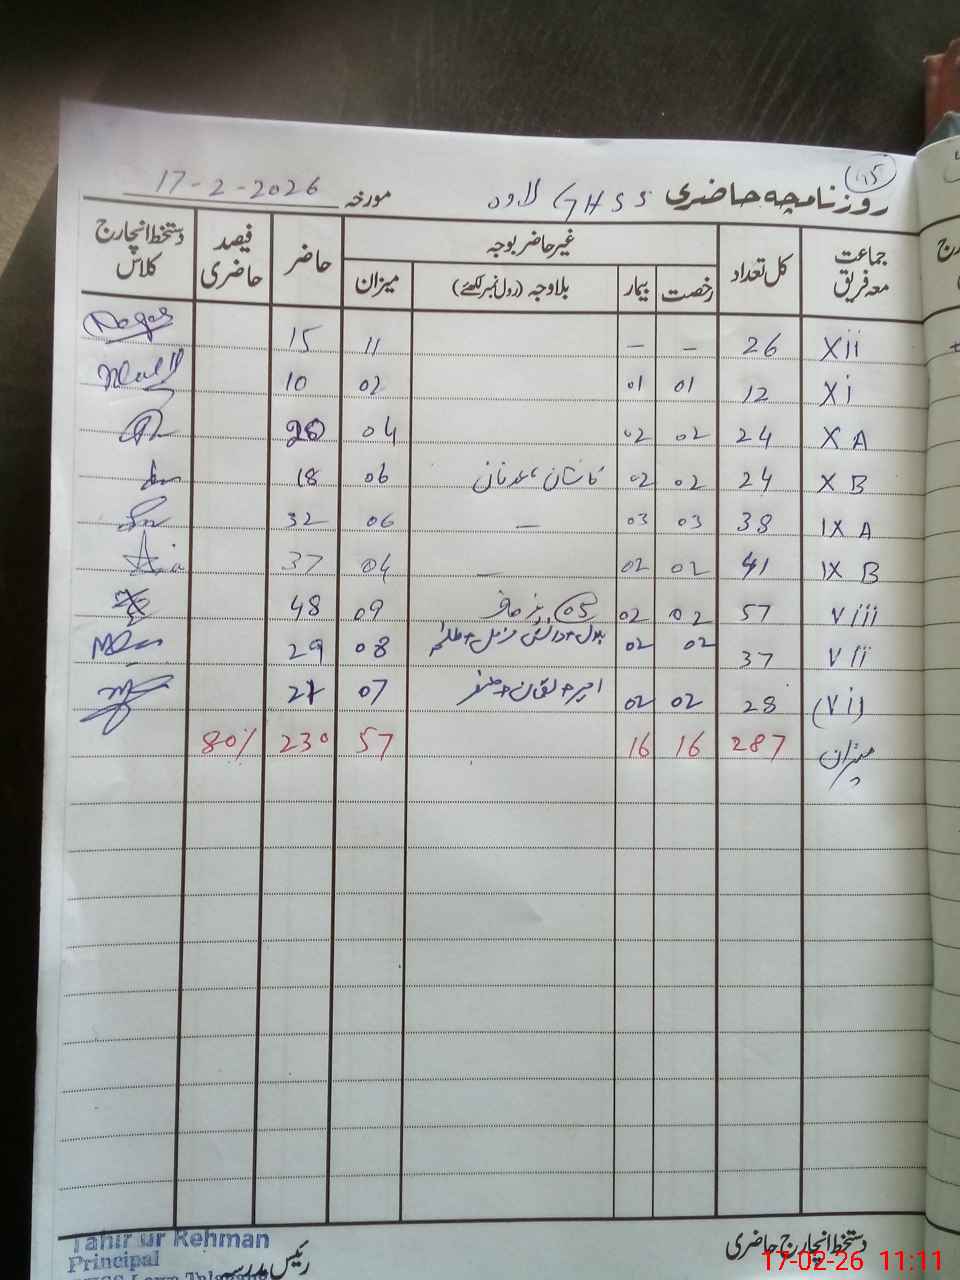 15
روزنامچہ حاضری GHSS لاوہ مورخہ 17-2-2026
جماعت معہ فریق کل تعداد غیر حاضر بوجہ حاضر فیصد حاضری دستخط انچارج کلاس
رخصت بیمار بلاوجہ (رول نمبر لکھئے) میزان
XII 26 - - 11 15
XI 12 01 01 02 10
X A 24 02 02 04 20
X B 24 02 02 کاشان، عدنان 06 18
IX A 38 03 03 — 06 32
IX B 41 02 02 — 04 37
VIII 57 02 02 05 09 48
VII 37 02 02 08 29
(VI) 28 02 02 07 21
میزان 287 16 16 57 230 80%
دستخط انچارج حاضری رئیس مدرسہ
Tahir ur Rehman
Principal
17-02-26 11:11